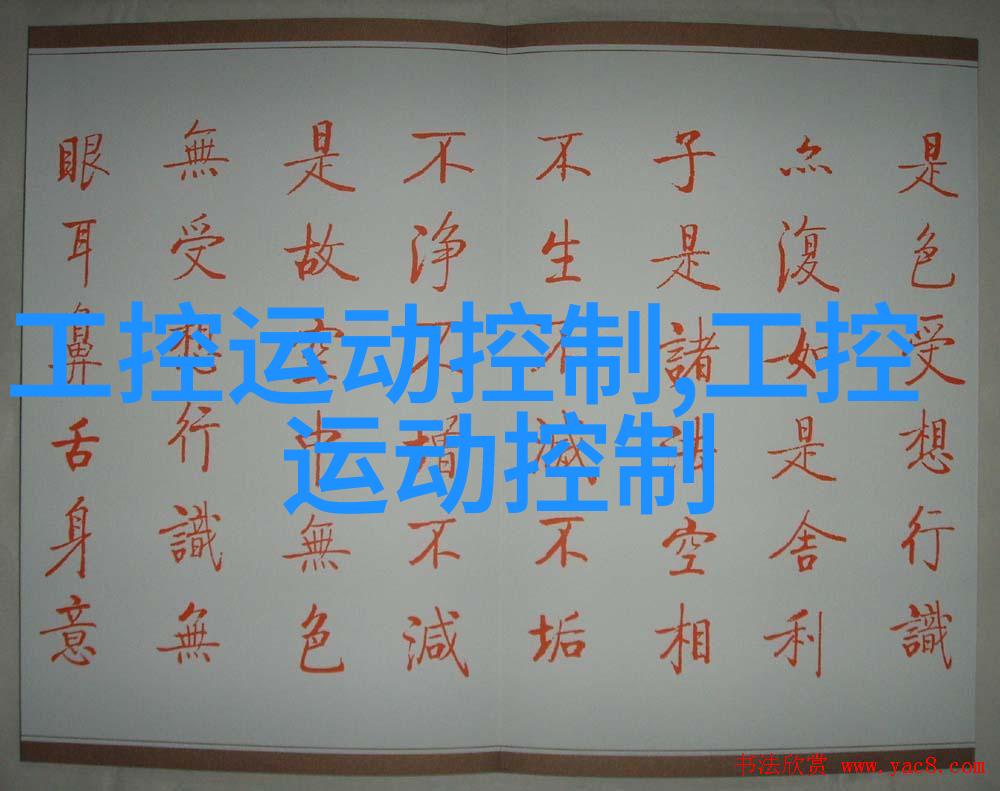 工控运动控制,工控
运动控制
是色受想行識
亦復如是舍利
子是諸法空相
不生不滅不垢
不淨不增不減
是故空中無色
無受想行識無
眼耳鼻舌身意
书法欣赏 www.yac8.com